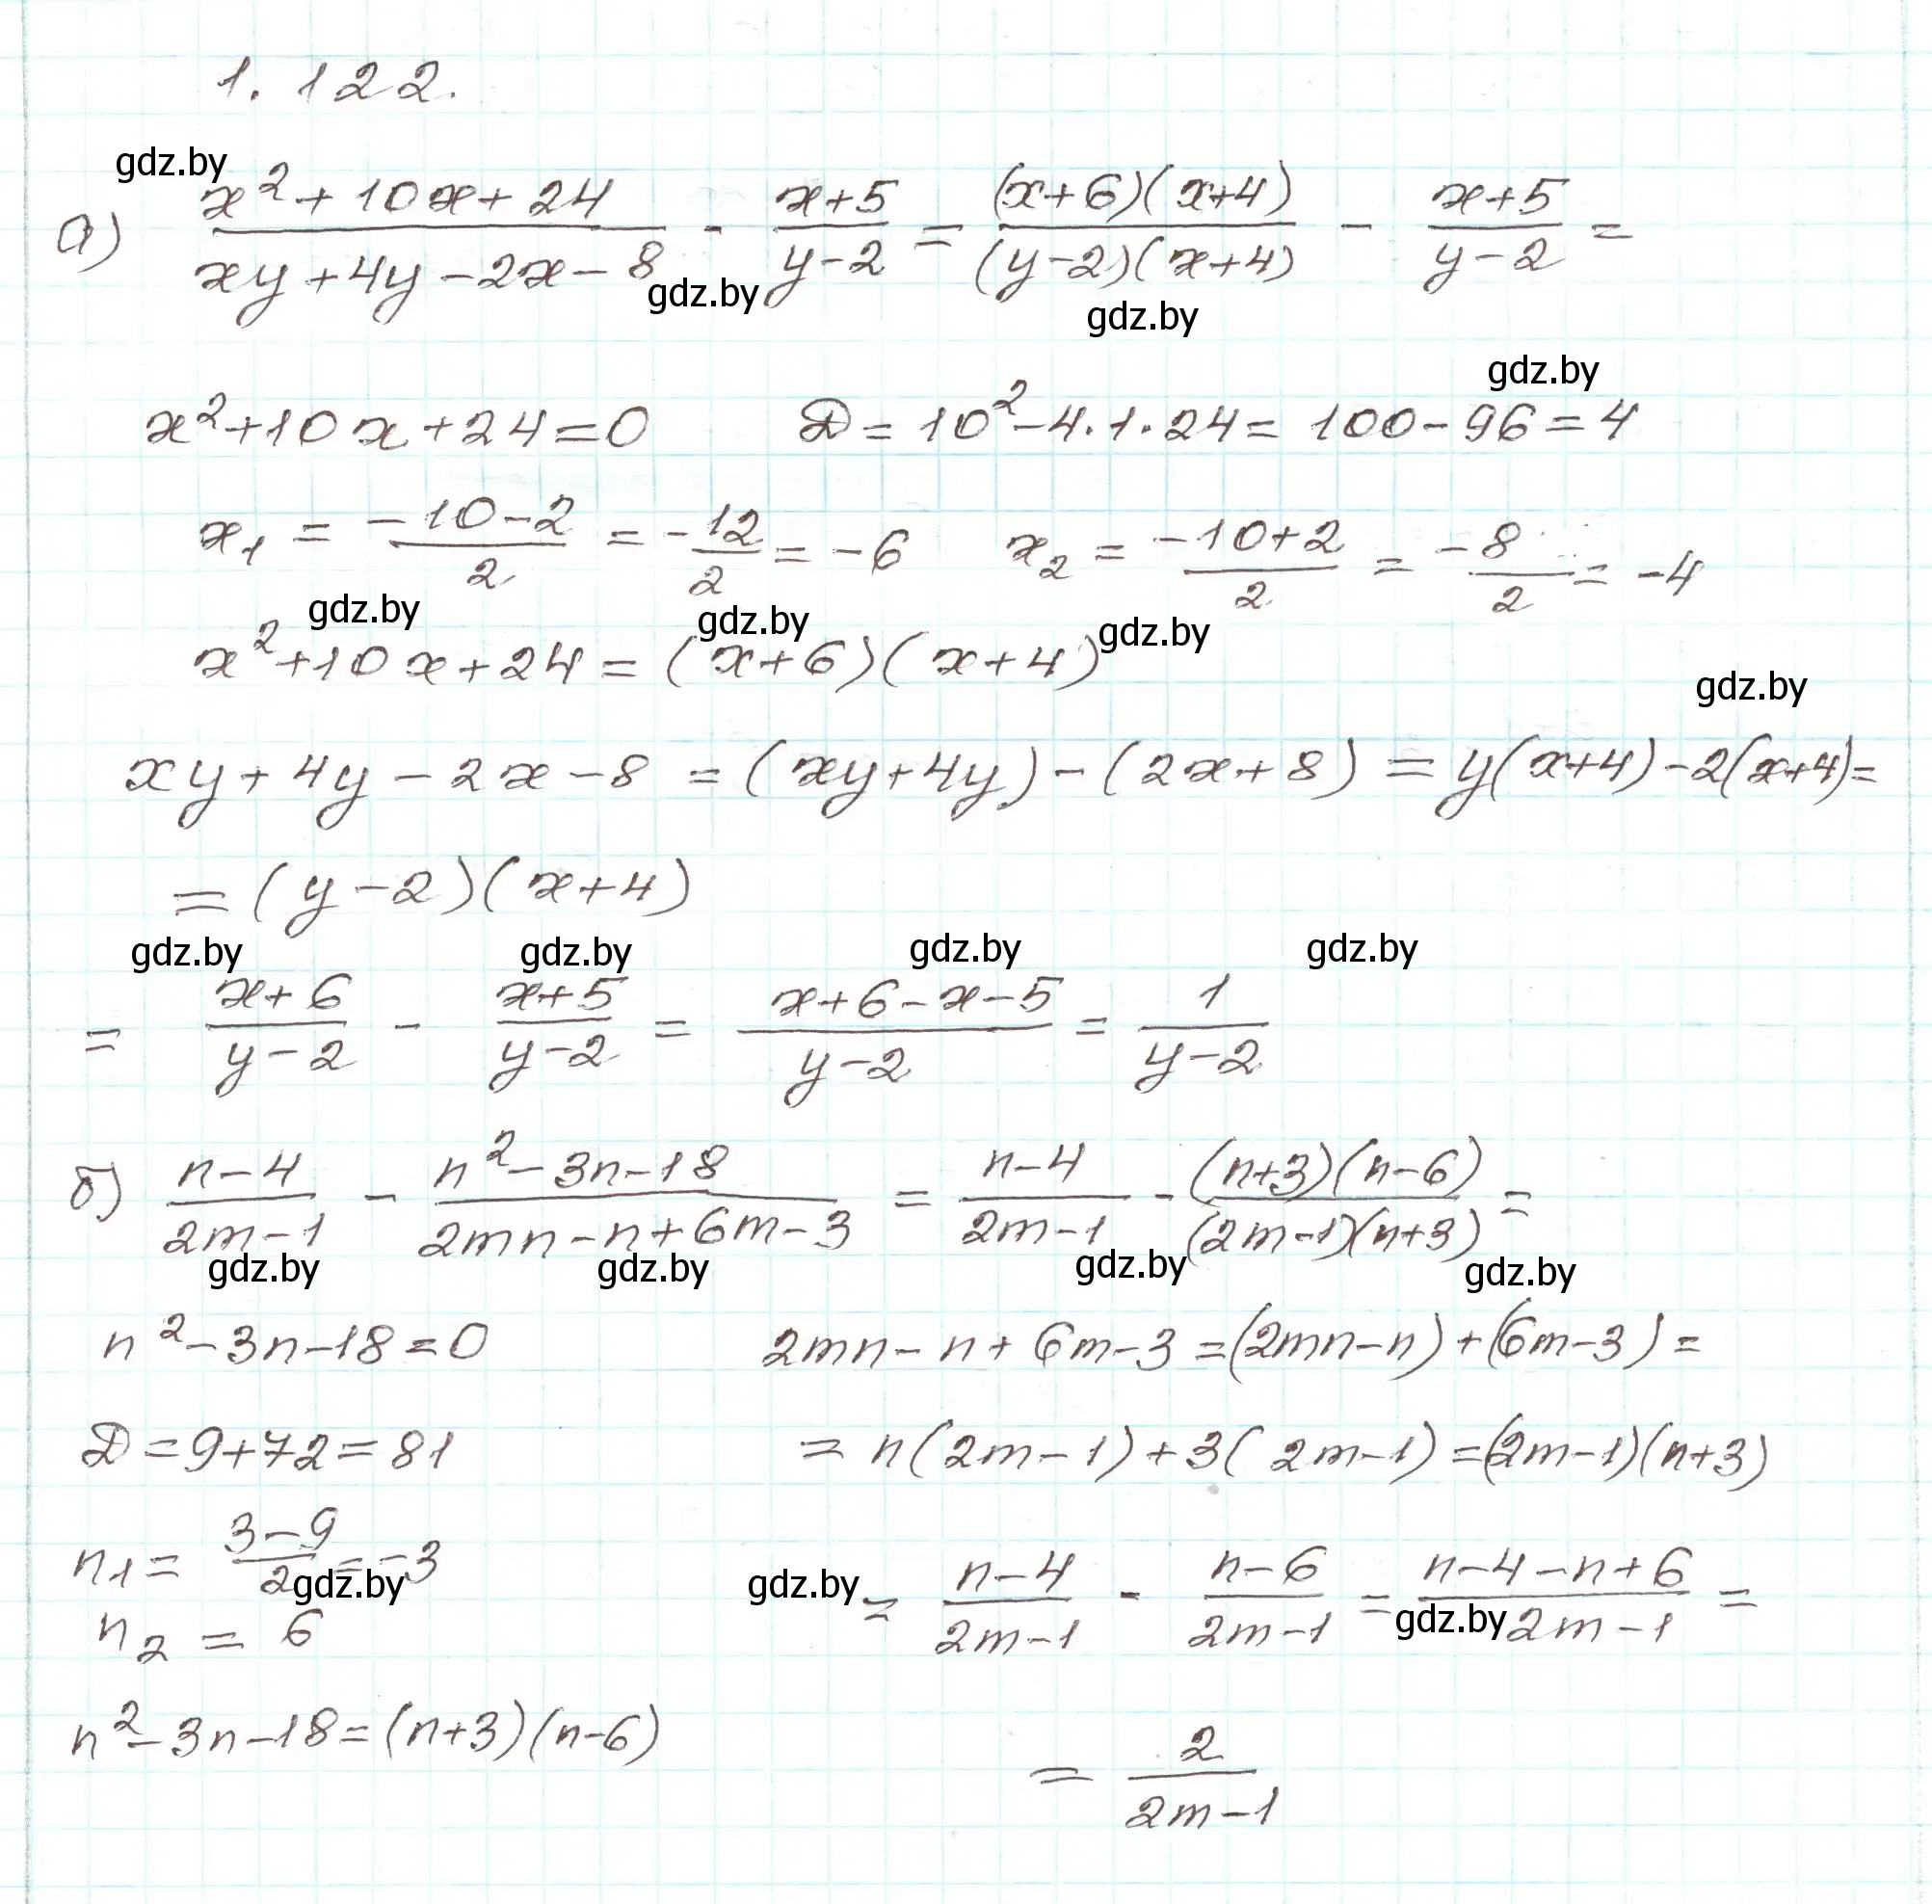 1.122.
gdz.by
а) (x²+10x+24)/(xy+4y-2x-8) - (x+5)/(y-2) = ((x+6)(x+4))/((y-2)(x+4)) - (x+5)/(y-2) =
gdz.by gdz.by
gdz.by
x²+10x+24=0 D=10²-4·1·24=100-96=4
x₁ = (-10-2)/2 = -12/2 = -6 x₂ = (-10+2)/2 = -8/2 = -4
gdz.by gdz.by gdz.by
x²+10x+24=(x+6)(x+4)
gdz.by
xy+4y-2x-8=(xy+4y)-(2x+8)=y(x+4)-2(x+4)=
=(y-2)(x+4)
gdz.by gdz.by gdz.by gdz.by
= (x+6)/(y-2) - (x+5)/(y-2) = (x+6-x-5)/(y-2) = 1/(y-2)
б) (n-4)/(2m-1) - (n²-3n-18)/(2mn-n+6m-3) = (n-4)/(2m-1) - ((n+3)(n-6))/((2m-1)(n+3)) =
gdz.by gdz.by gdz.by gdz.by
n²-3n-18=0 2mn-n+6m-3=(2mn-n)+(6m-3)=
D=9+72=81 =n(2m-1)+3(2m-1)=(2m-1)(n+3)
n₁ = (3-9)/2 = -3 = (n-4)/(2m-1) - (n-6)/(2m-1) = (n-4-n+6)/(2m-1) =
gdz.by gdz.by gdz.by
n₂ = 6
n²-3n-18=(n+3)(n-6)
= 2/(2m-1)